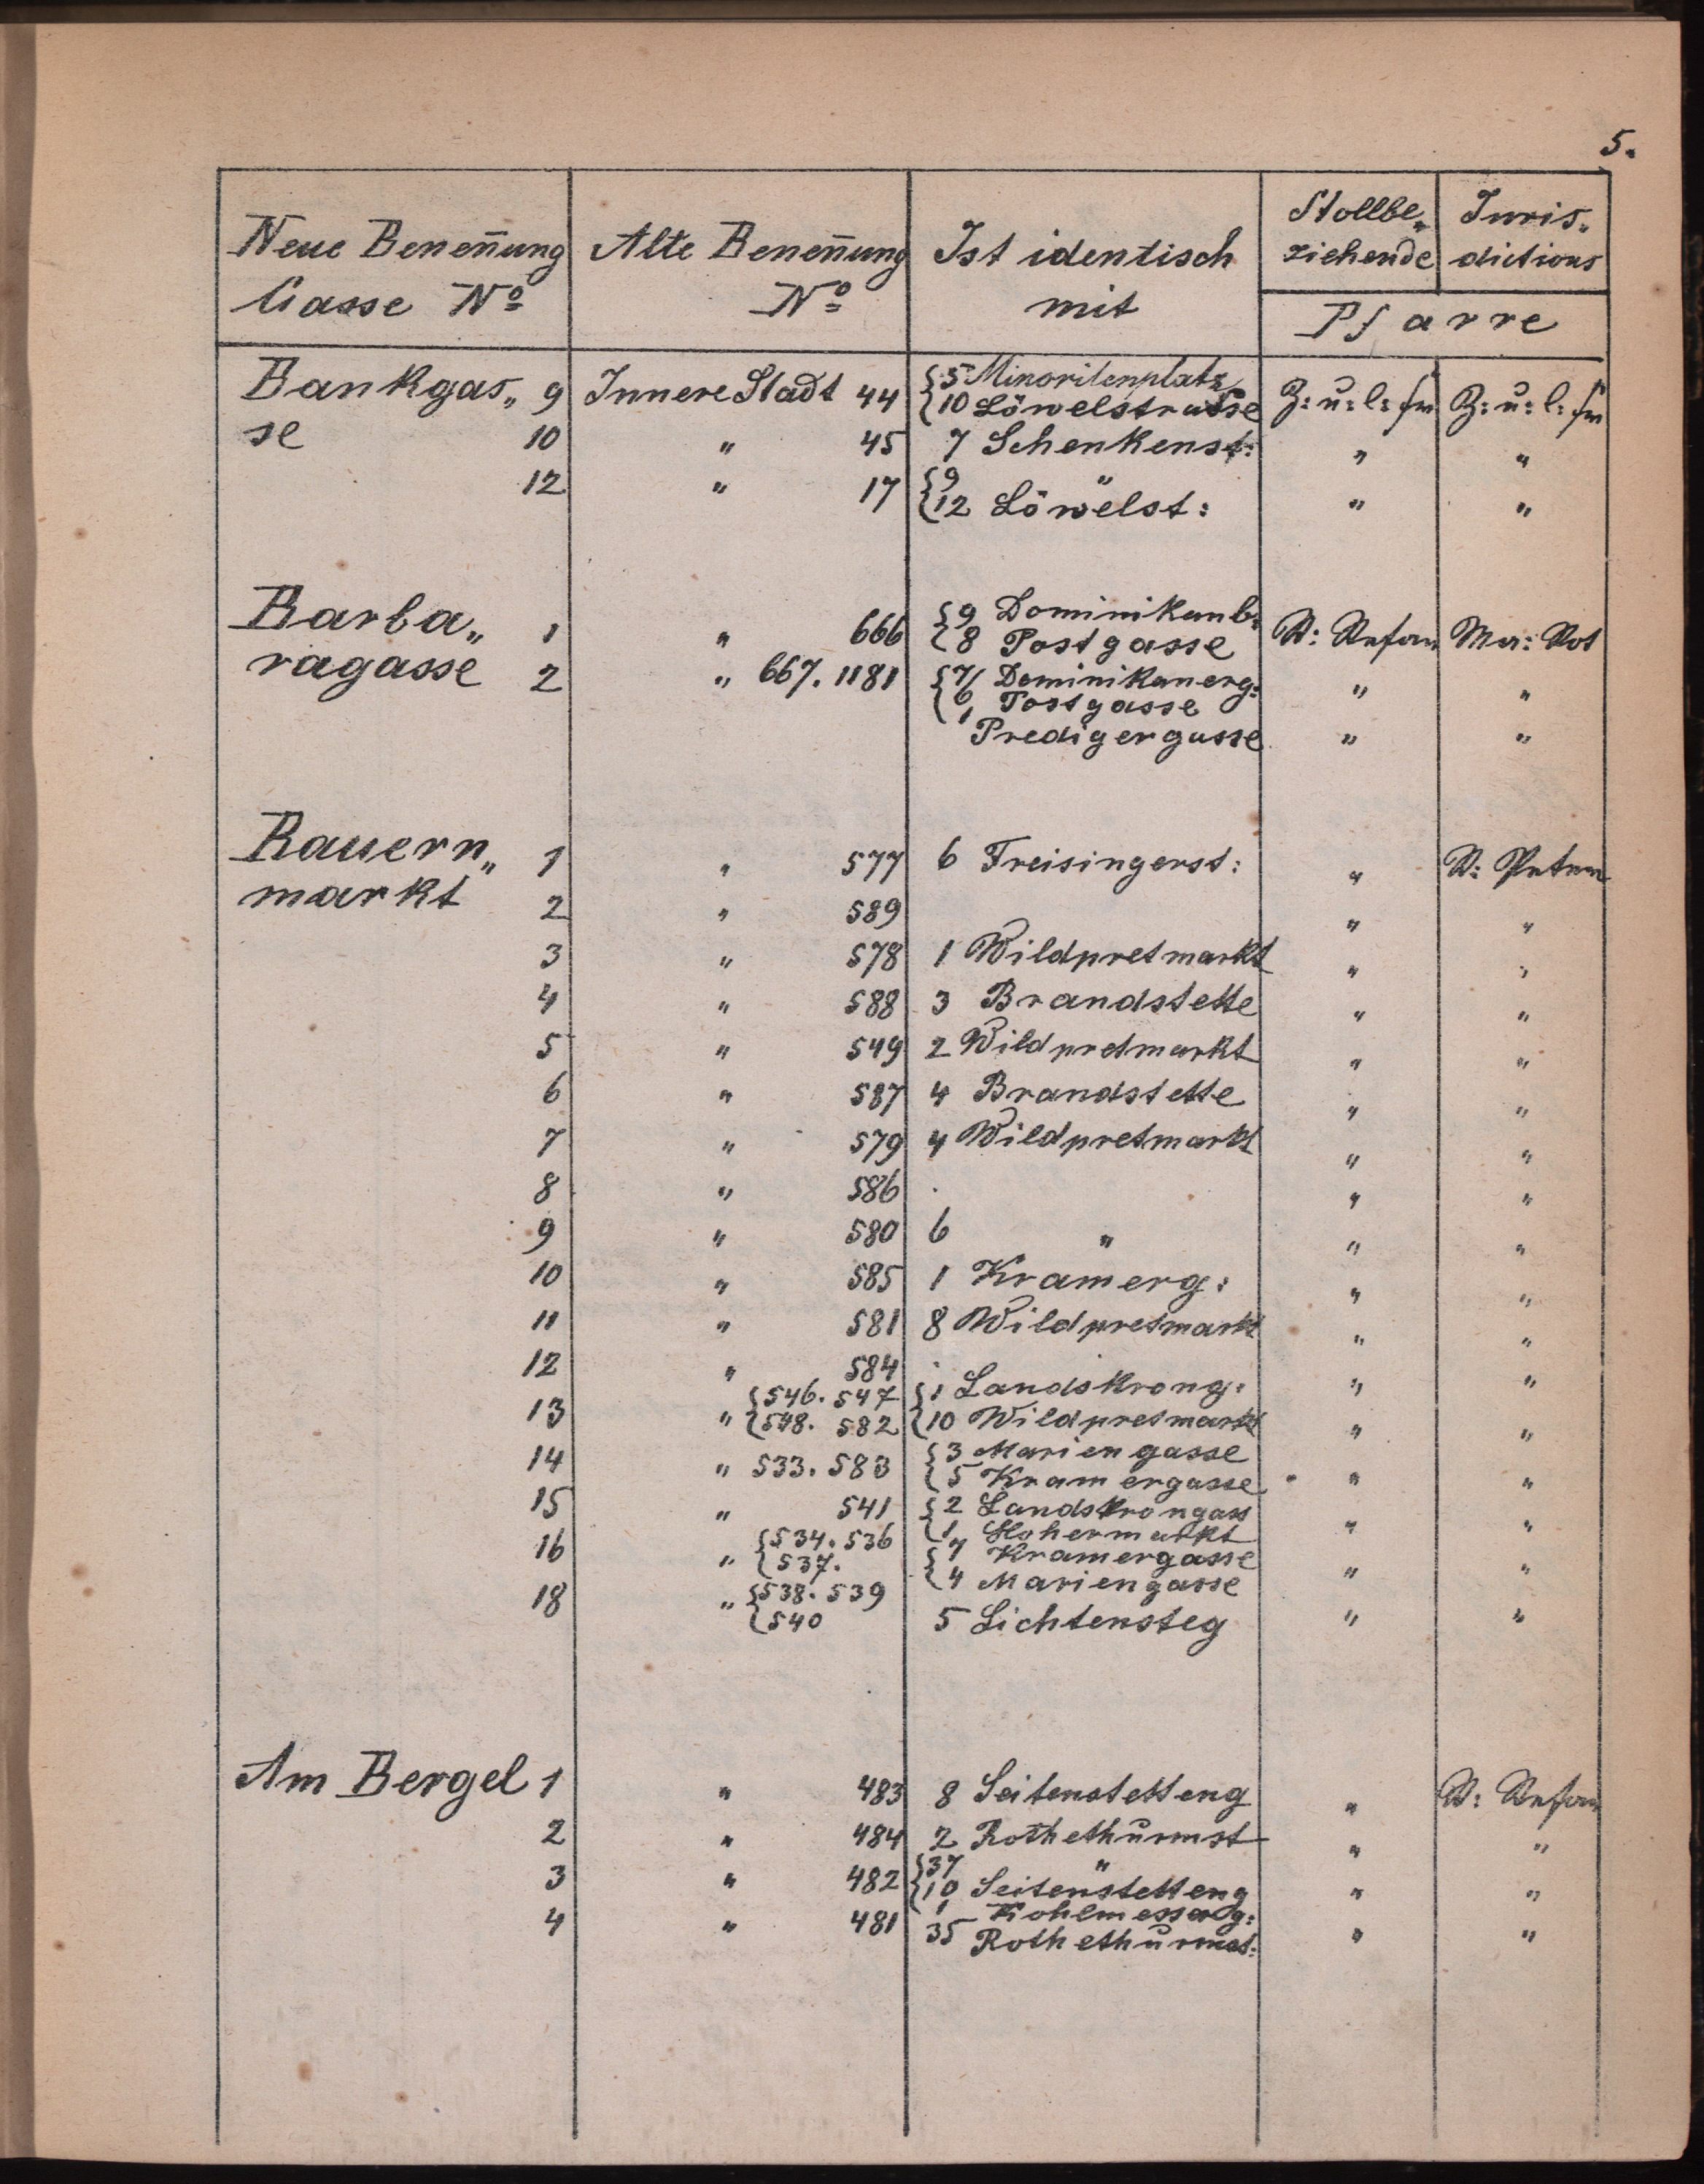 5.
Neue Beneñung Alte Beneñung Ist identisch Stollbe„ Juris„
ziehende dictions
Gasse No No mit Pfarre
Bankgas„ 9 Innere Stadt 44 {5 Minoritenplatz Z: u: l: fr Z: u: l: fr
{10 Löwelstrasse
se 10 " 45 7 Schenkenst: " "
12 " 17 {9 "
{12 Löwelst: " "
Barba„ 1 " 666 {9 Dominikanb: St: Stefan Ma: Rot
{8 Postgasse
ragasse 2 „ 667. 1181 {7 Dominikanerg: " "
{6 Postgasse
1 Predigergasse " "
Bauern„ 1 " 577 6 Freisingerst: " St: Peter
markt 2 " 589 " "
3 " 578 1 Wildpretmarkt " "
4 " 588 3 Brandstette " "
5 " 549 2 Wildpretmarkt " "
6 " 587 4 Brandstette " "
7 " 579 4 Wildpretmarkt " "
8 " 586 . " "
9 " 580 6 " " "
10 " 585 1 Kramerg: " "
11 " 581 8 Wildpretmarkt " "
12 " 584 . " "
13 " {546. 547 {1 Landskrong:
{548. 582 {10 Wildpretmarkt " "
14 " 533. 583 {3 Mariengasse
{5 Kramergasse " "
15 " 541 {2 Landskrongass
{1 Hohermarkt " "
16 " {534. 536 {7 Kramergasse
{537. {4 Mariengasse " "
18 " {538. 539
{540 5 Lichtensteg " "
Am Bergel 1 " 483 8 Seitenstetteng " St: Stefan
2 " 484 2 Rothethurmst " "
3 " 482 {37 "
{10 Seitenstetteng " "
1 Kohlmesserg:
4 " 481 35 Rothethurmst: " "